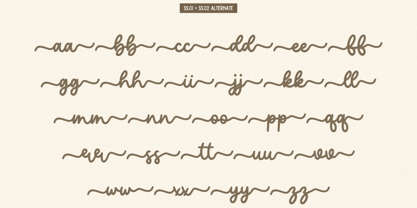 SS.01 + SS.02 ALTERNATE
aa bb cc dd ee ff
gg hh ii jj kk ll
mm nn oo pp qq
rr ss tt uu vv
ww xx yy zz